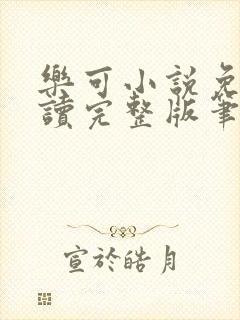 樂可小說免
讀完整版筆
宣於皓月